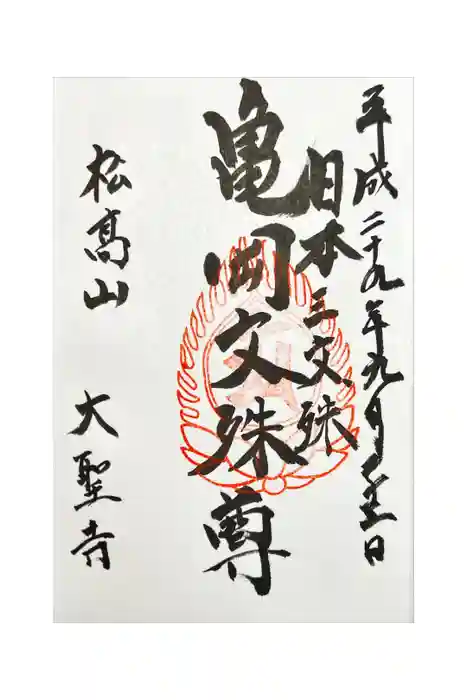 平成二十九年九月日
日本三文殊
亀岡文殊尊
松高山 大聖寺